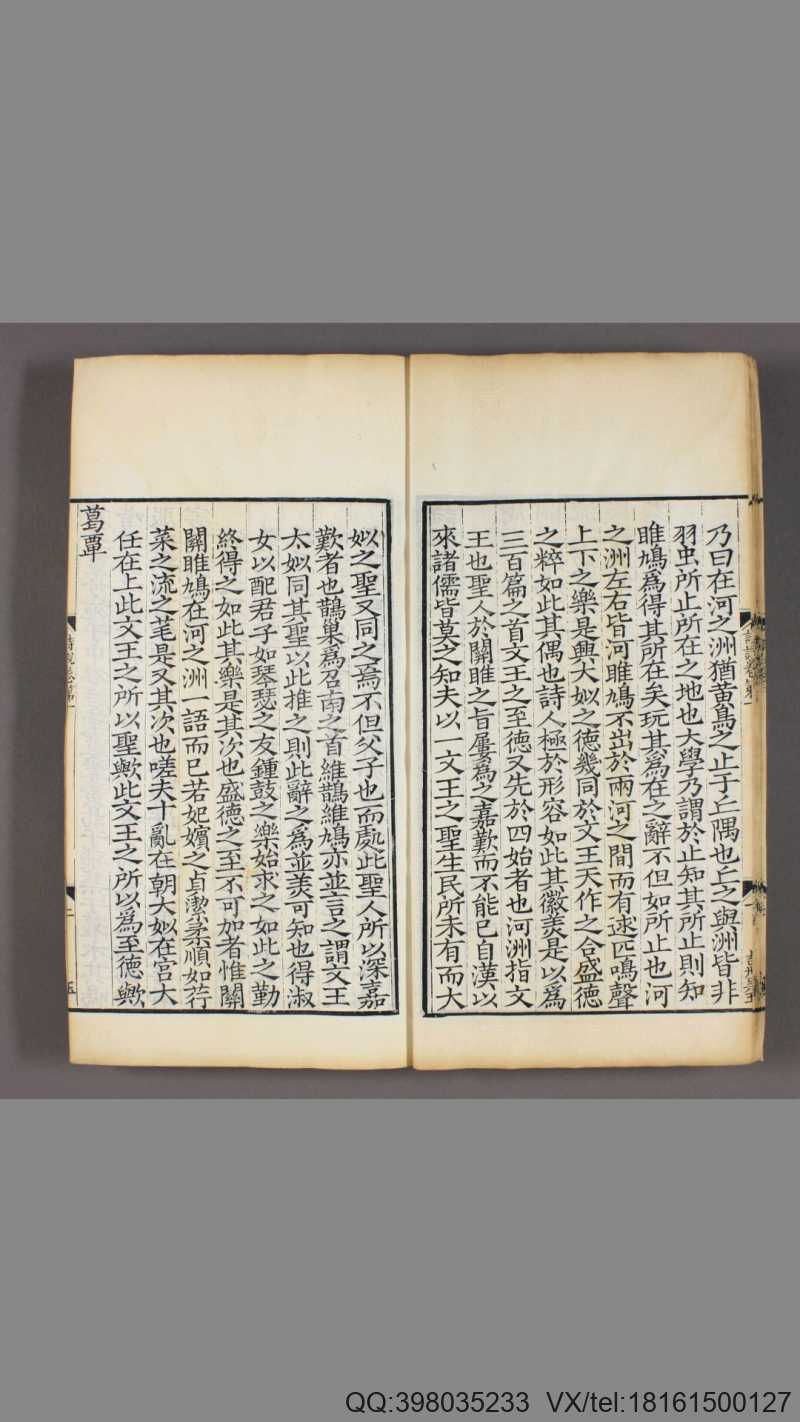 乃曰在河之洲猶黃鳥之止于丘隅也丘之與洲皆非
羽虫所止所在之地也大學乃謂於止知其所止則知
雎鳩為得其所在矣玩其為在之辭不但如所止也河
之洲左右皆河雎鳩不出於兩河之間而有逑匹鳴聲
上下之樂是興大姒之德幾同於文王天作之合盛德
之粹如此其偶也詩人極於形容如此其徽美是以為
三百篇之首文王之至德又先於四始者也河洲指文
王也聖人於關雎之旨屢為之嘉歎而不能已自漢以
來諸儒皆莫之知夫以一文王之聖生民所未有而大
姒之聖又同之焉不但父子也而處此聖人所以深嘉
歎者也鵲巢為召南之首維鵲維鳩亦並言之謂文王
太姒同其聖以此推之則此辭之為並美可知也得淑
女以配君子如琴瑟之友鍾鼓之樂始求之如此之勤
終得之如此其樂是其次也盛德之至不可加者惟關
關雎鳩在河之洲一語而已若妃嬪之貞潔柔順如荇
菜之流之芼是又其次也嗟夫十亂在朝大姒在宮大
任在上此文王之所以聖歟此文王之所以為至德歟
葛覃
詩說卷第一
五
QQ:398035233 VX/tel:18161500127